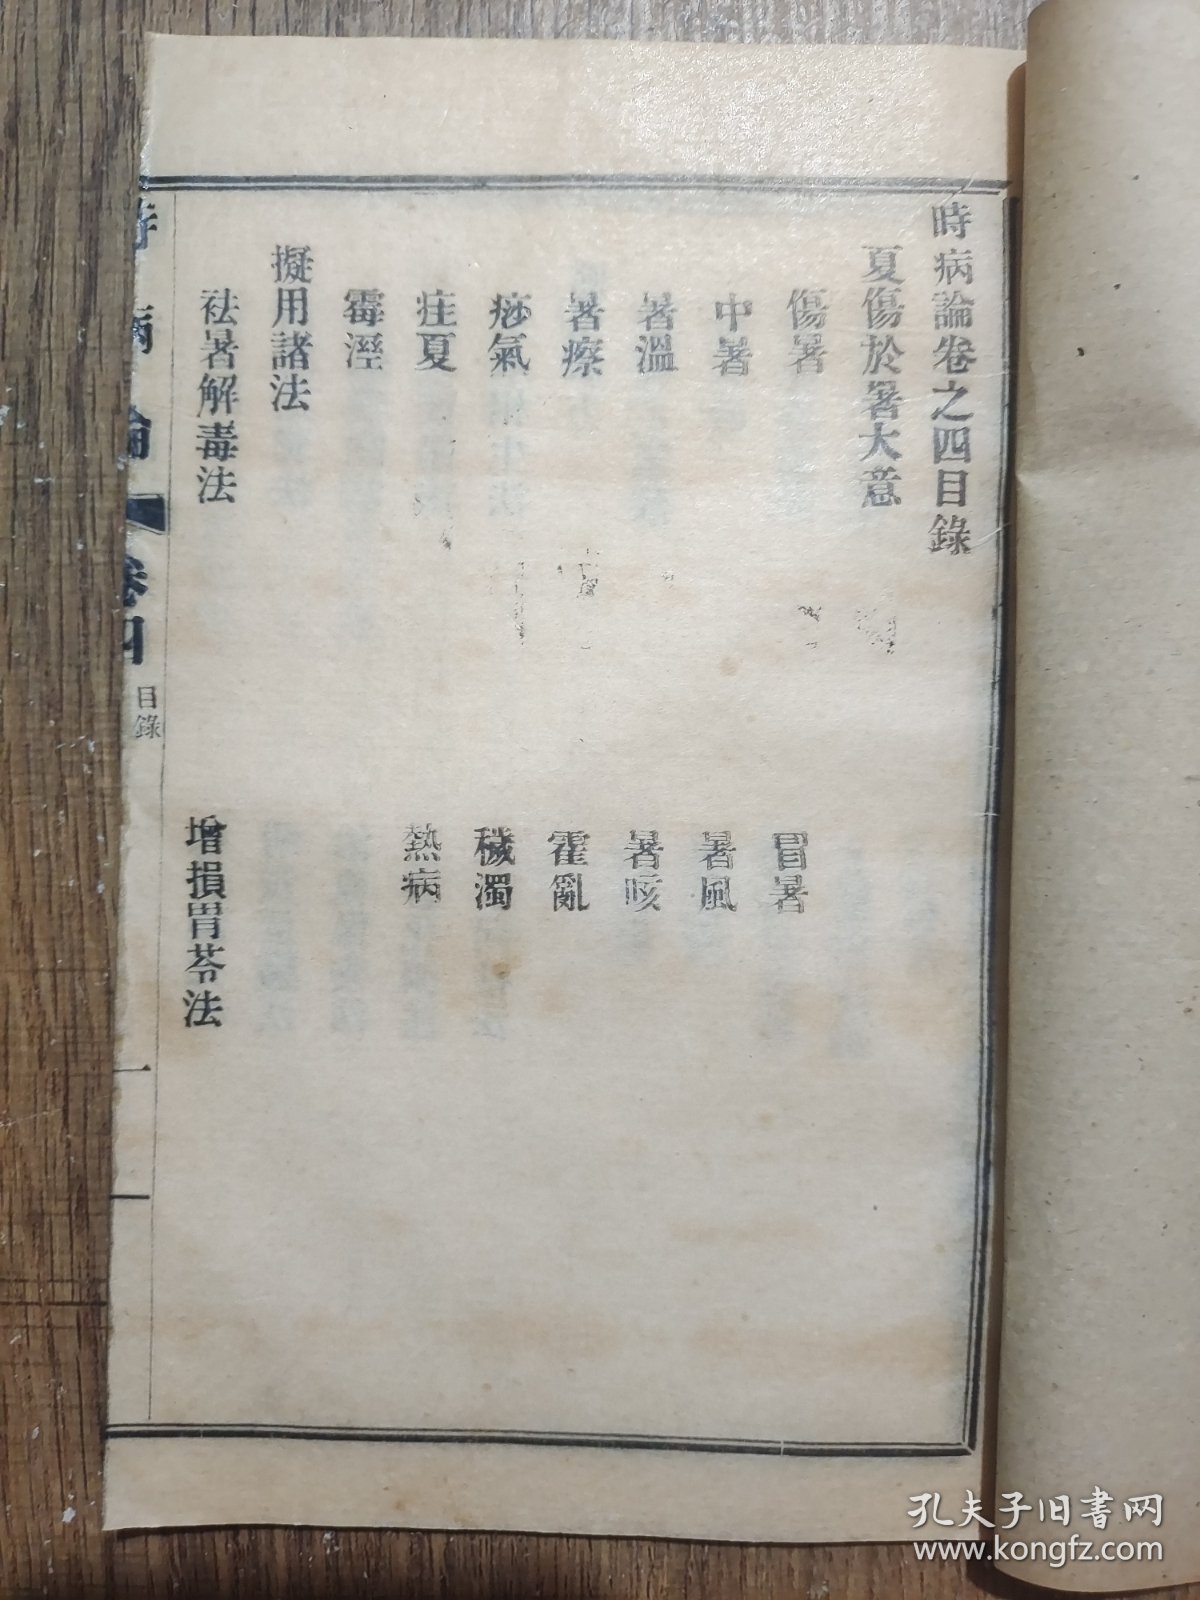 時病論卷之四目錄
夏傷於暑大意
傷暑
冒暑
中暑
暑風
暑溫
暑咳
暑瘵
霍亂
痧氣
穢濁
疰夏
熱病
霉溼
擬用諸法
祛暑解毒法
增損胃苓法
時病論
卷四
目錄
一
孔夫子旧书网
www.kongfz.com